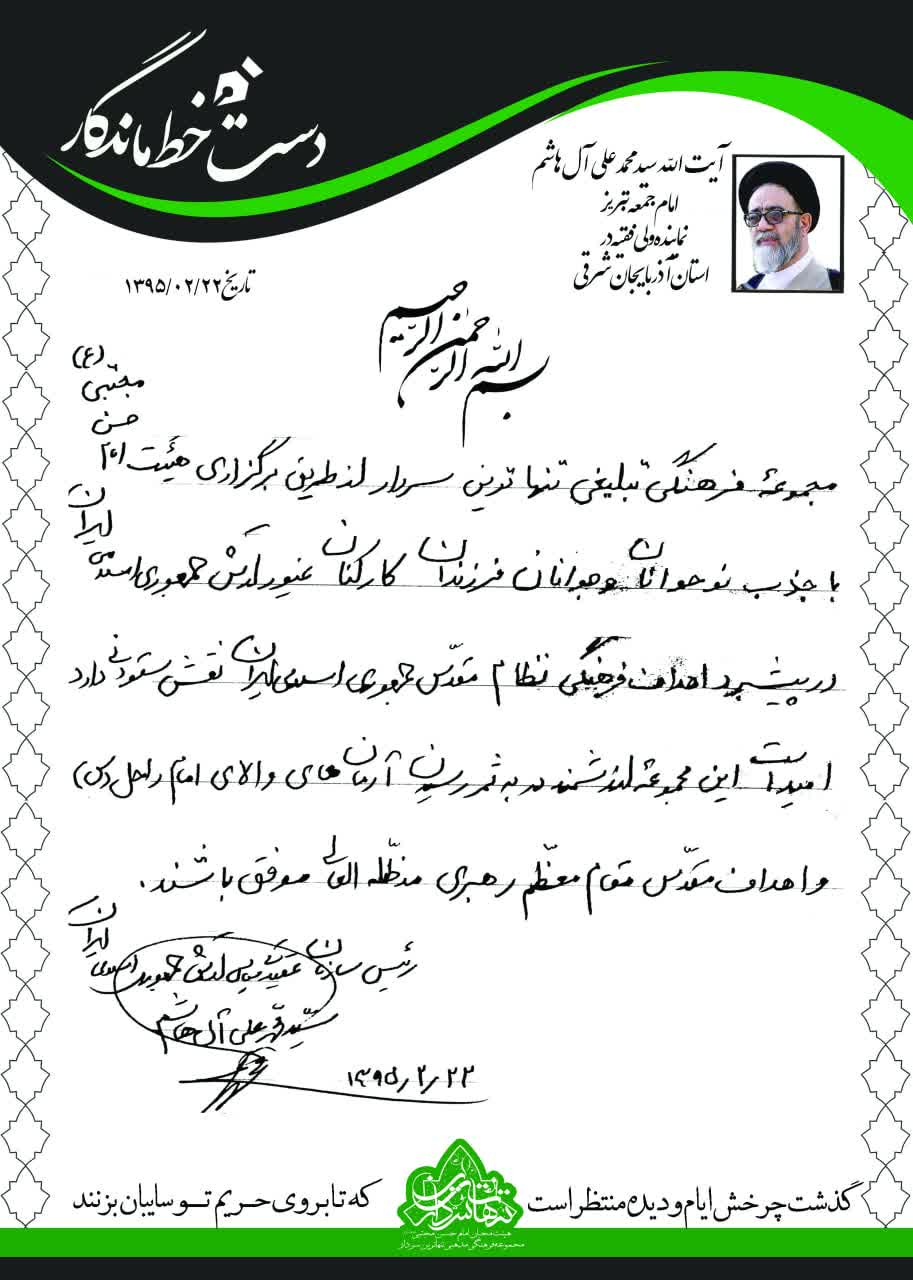 دست خط ماندگار
آیت الله سید محمد علی آل هاشم
امام جمعه تبریز
نماینده ولی فقیه در
استان آذربایجان شرقی
تاریخ ۱۳۹۵/۰۲/۲۲
بسم الله الرحمن الرحیم
مجموعهٔ فرهنگی تبلیغی تنها ترین سردار از طریق برگزاری هیئت امام حسن مجتبی (ع)
با جذب نوجوانان و جوانان فرزندان کارکنان غیور ارتش جمهوری اسلامی ایران
در پیشبرد اهداف فرهنگی نظام مقدّس جمهوری اسلامی ایران نقش ستودنی دارد
امید است این مجموعهٔ ارزشمند در به ثمر رسیدن آرمان های والای امام راحل (س)
و اهداف مقدّس مقام معظّم رهبری مدظّله العالی موفق باشند.
رئیس سازمان عقیدتی سیاسی ارتش جمهوری اسلامی ایران
سیّد محمّد علی آل هاشم
۱۳۹۵/۲/۲۲
گذشت چرخش ایام و دیده منتظر است
که تا بروی حریم تو سایبان بزنند
تنهاترین سردار
هیئت محبان امام حسن مجتبی
مجموعه فرهنگی مذهبی تنهاترین سردار